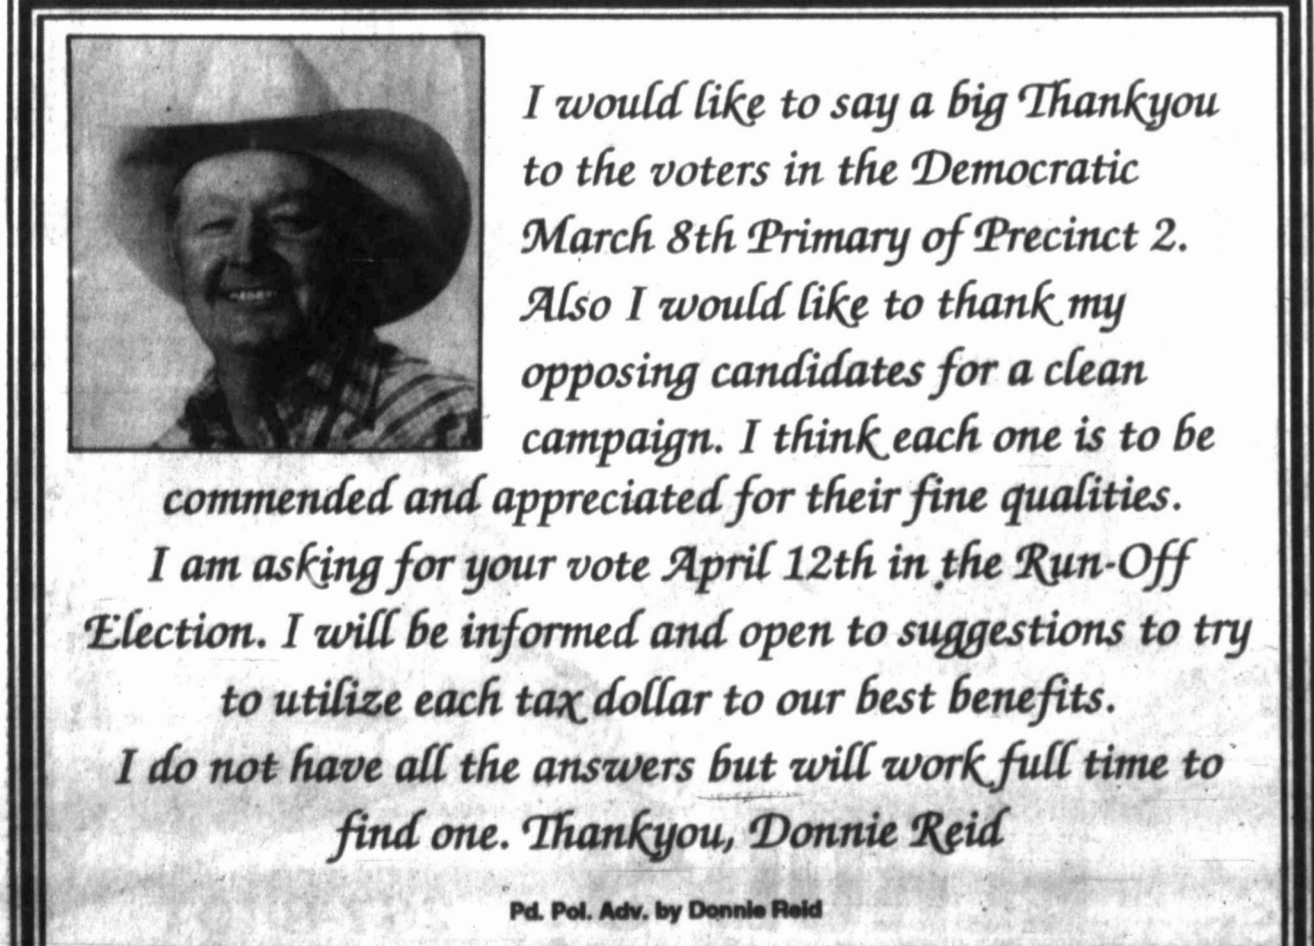 I would like to say a big Thankyou
to the voters in the Democratic
March 8th Primary of Precinct 2.
Also I would like to thank my
opposing candidates for a clean
campaign. I think each one is to be
commended and appreciated for their fine qualities.
I am asking for your vote April 12th in the Run-Off
Election. I will be informed and open to suggestions to try
to utilize each tax dollar to our best benefits.
I do not have all the answers but will work full time to
find one. Thankyou, Donnie Reid
Pd. Pol. Adv. by Donnie Reid